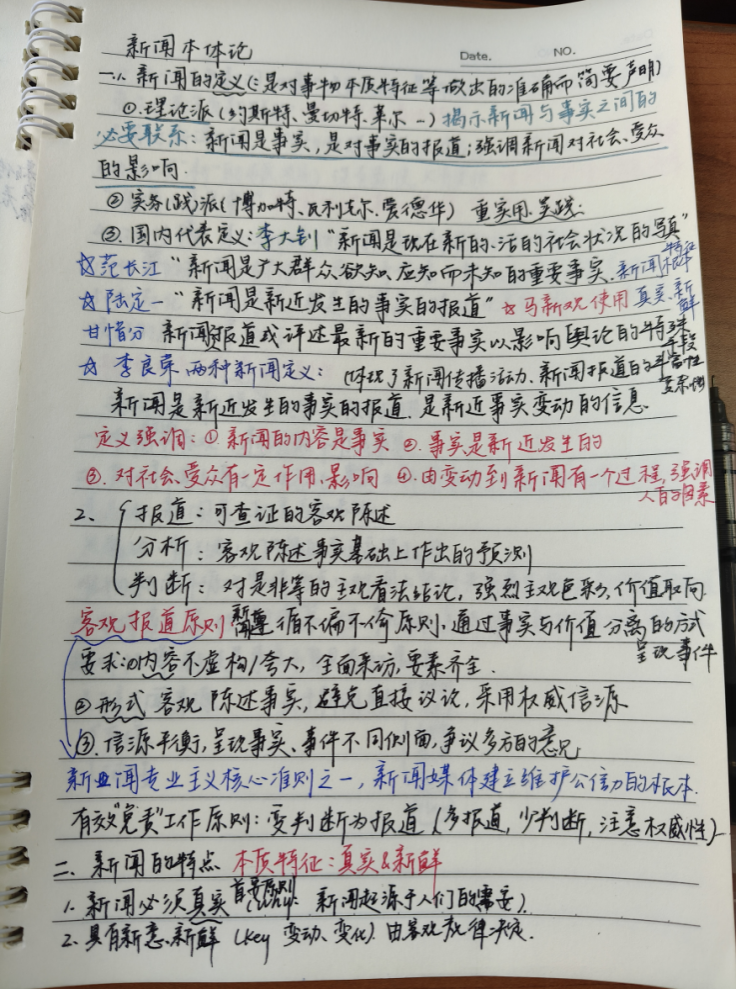 新闻本体论
Date. NO.
一、1. 新闻的定义(:是对事物本质特征等做出的准确而简要声明)
①.理论派(约斯特、曼切特、 ) 揭示新闻与事实之间的
必要联系:新闻是事实,是对事实的报道;强调新闻对社会、受众
的影响.
② 实务(践)派(博加特、瓦利戈尔、爱德华) 重实用.
③. 国内代表定义:李大钊“新闻是现在新的、活的社会状况的写真”
☆范长江“新闻是广大群众欲知、应知而未知的重要事实. 新闻特征 根本
☆陆定一“新闻是新近发生的事实的报道”☆马新观使用 真实、新鲜
甘惜分 新闻 报道或评述最新的重要事实以影响舆论的特殊手段
☆ 李良荣 两种新闻定义: (体现了新闻传播活动、新闻报道的
新闻是新近发生的事实的报道. 是新近事实变动的信息.
定义强调:① 新闻的内容是事实 ②. 事实是新近发生的
③. 对社会、受众有一定作用、影响 ④.由变动到新闻有一个过程,强调
人 的因素
2、 报道:可查证的客观陈述
分析:客观陈述事实基础上作出的预测
判断:对是非等的主观看法结论,强烈主观色彩,价值取向
客观报道原则 新闻遵循不偏不倚原则、通过事实与价值分离的方式
呈现事件
要求:①内容不虚构/夸大,全面采访,要素齐全.
②形式 客观陈述事实,避免直接议论,采用权威信源
③. 信源平衡,呈现事实、事件不同侧面,争议多方的意见
新闻专业主义核心准则之一,新闻媒体建立维护公信力的根本.
有效“免责”工作原则:变判断为报道(多报道,少判断,注意权威性)
二、新闻的特点 本质特征:真实&新鲜
1. 新闻必须真实 首要原则 (why: 新闻起源于人们的需要)
2. 具有新意、新鲜 (key 变动、变化) 由客观规律决定.